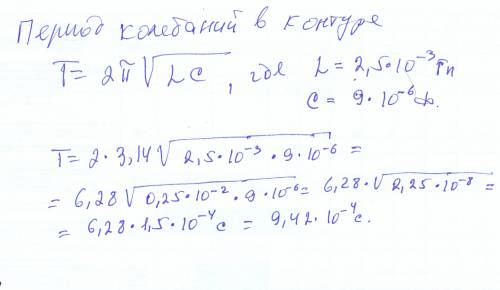 Период колебаний в контуре
T = 2π√LC, где L = 2,5·10⁻³ Гн
C = 9·10⁻⁶ Ф.
T = 2·3,14√2,5·10⁻³·9·10⁻⁶ =
= 6,28√0,25·10⁻²·9·10⁻⁶ = 6,28·√2,25·10⁻⁸ =
= 6,28·1,5·10⁻⁴ с = 9,42·10⁻⁴ с.